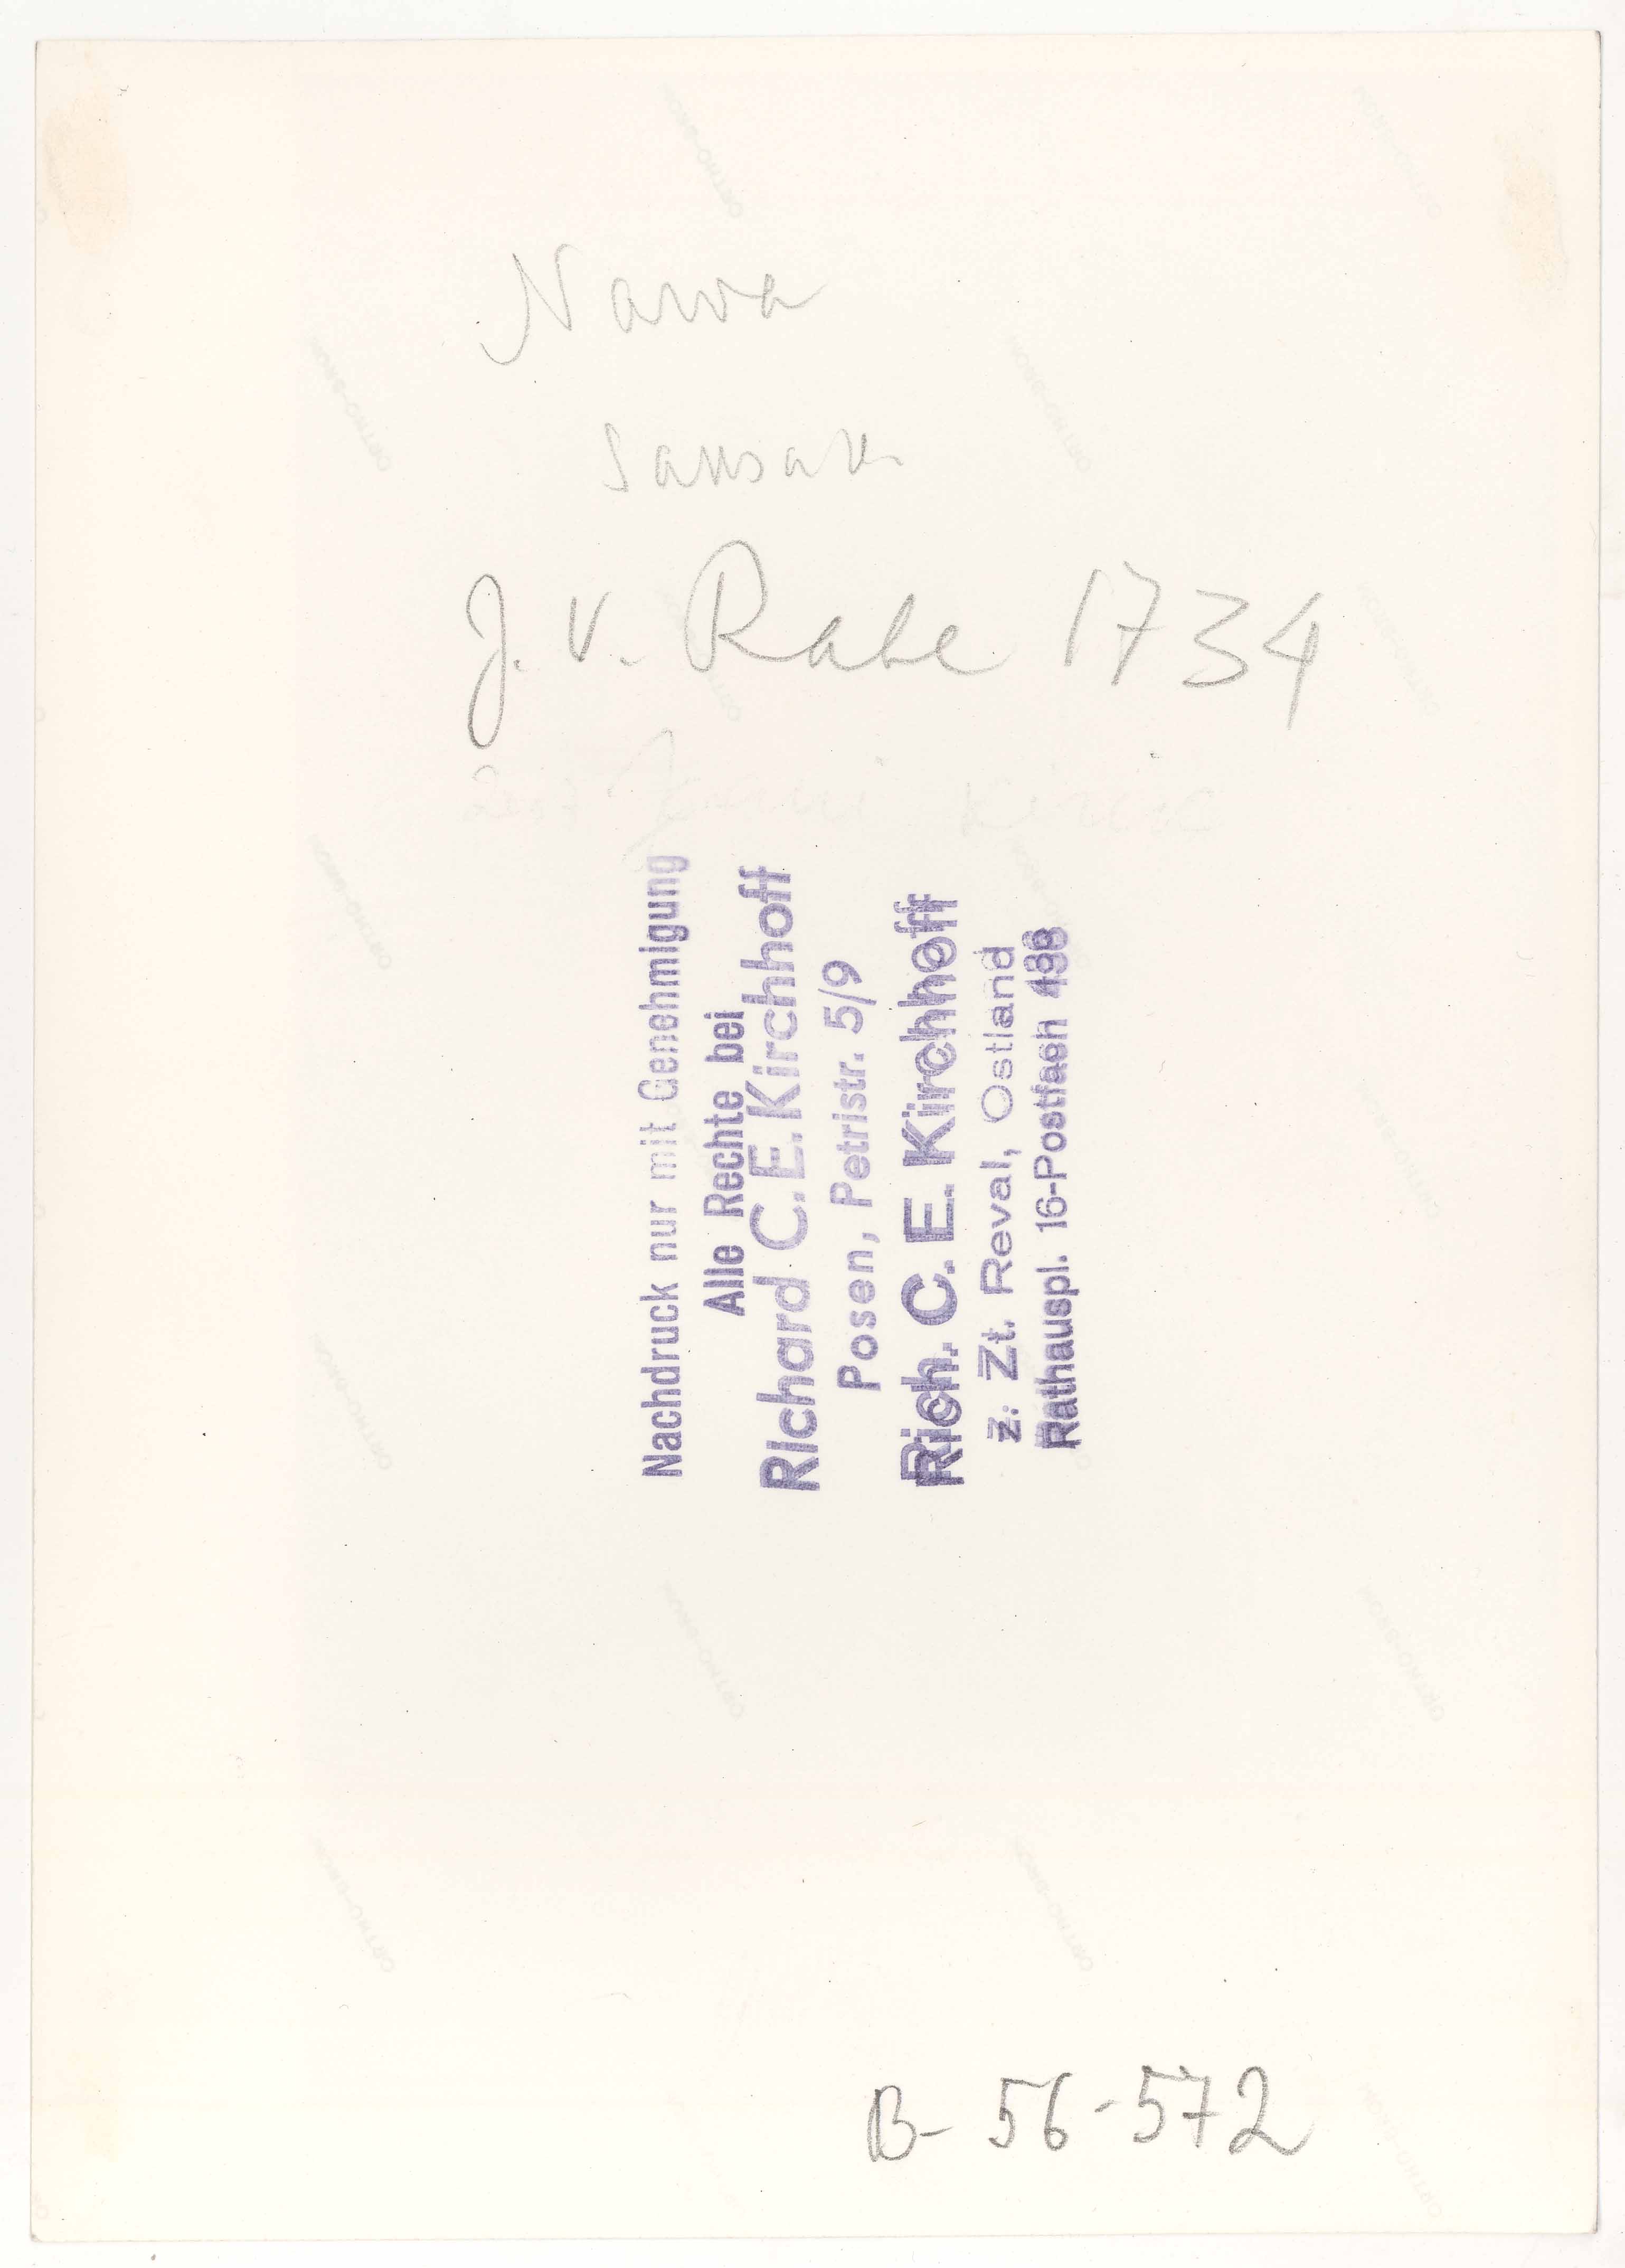 Narva
J. v. Rabe 1734
Nachdruck nur mit Genehmigung
Alle Rechte bei
Richard C.E.Kirchhoff
Posen, Petristr. 5/9
Rich. C. E. Kirchhoff
z. Zt. Reval, Ostland
Rathauspl. 16-Postfach
B- 56-572